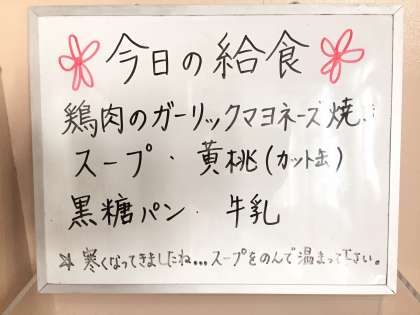 今日の給食
鶏肉のガーリックマヨネーズ焼・
スープ・黄桃(カット缶)
黒糖パン・牛乳
☆寒くなってきましたね...スープをのんで温まって下さい。